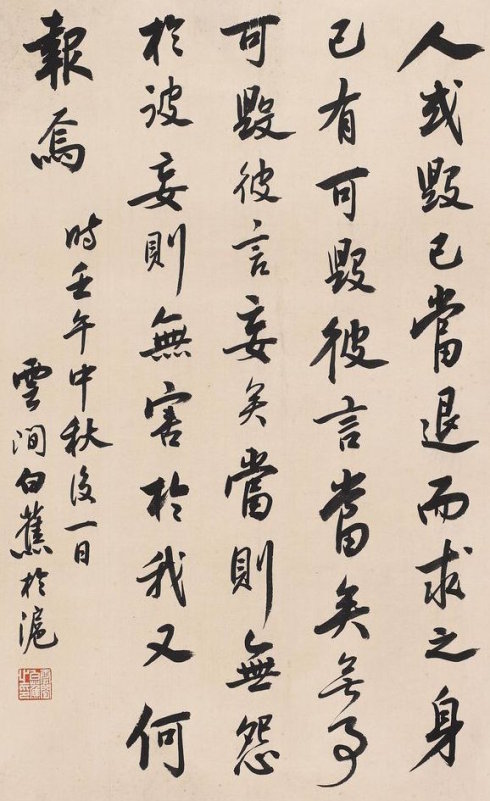 人或毀己當退而求之身
己有可毀彼言當矣無所
可毀彼言妄矣當則無怨
於彼妄則無害於我又何
報焉
時壬午中秋後一日
雲間白蕉於滬